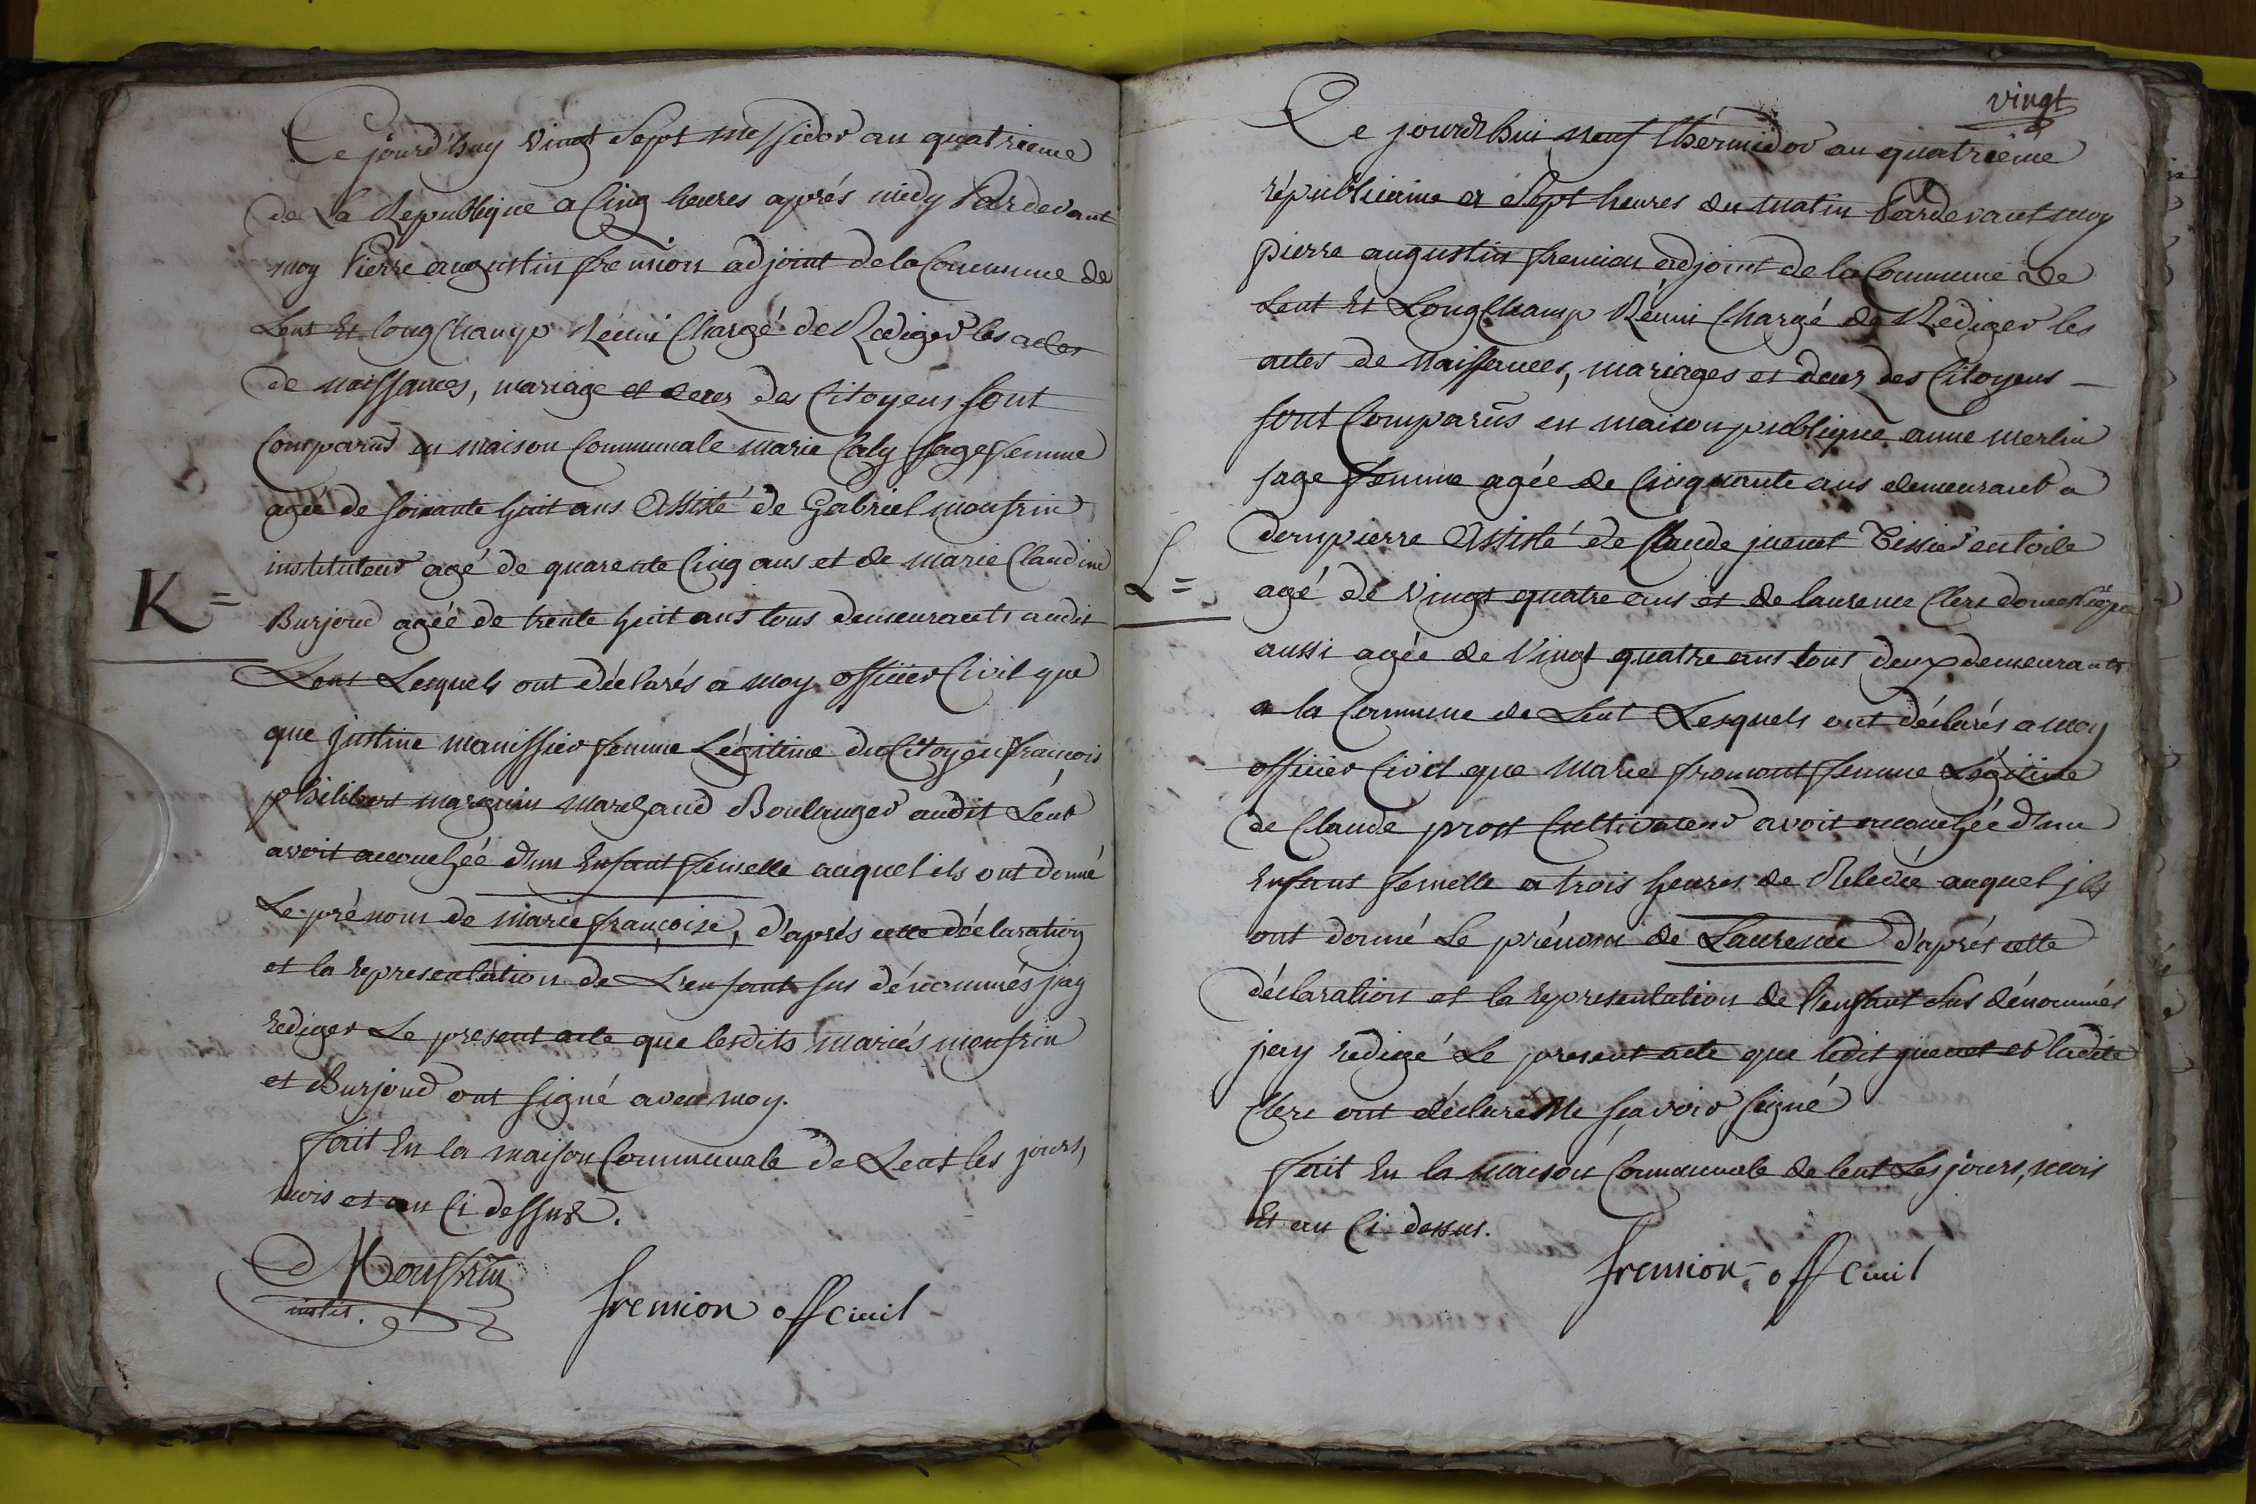 Ce jourd'huy vingt Sept messidor an quatrieme
de La Republique a Cinq heures aprés midy Pardevant
moy Pierre augustin fremion adjoint de la Commune de
Lent Et longChamp Réuni Chargé de Rediger les actes
de naissances, mariage et decez des Citoyens sont
Comparus en maison Communale marie Caly sage femme
agée de soixante huit ans Assisté de Gabriel monfrin
instituteur agé de quarente Cinq ans et de marie Claudine
Burjoud agéé de trente huit ans tous demeurants audit
Lent Lesquels ont déclarés a moy officier Civil que
que justine manissier femme Légitime du Citoyen francois
philibert marguin marchand Boulanger audit Lent
avoit accouchéé d'un Enfant femelle auquel ils ont donné
Le prénom de marie françoise, d'aprés cette déclaration
et la representation de L'enfant sus dénommés jay
rediger Le present acte que lesdits mariés monfrin
et Burjoud ont signé avec moy.
fait En la maison Communale de Lent les jours,
mois et an Ci dessus.
K =
Monfrin
instit.
fremion off civil
vingt
Ce jourd'hui neuf thérmidor an quatrieme
républicaine a Sept heures du matin Pardevant moy
pierre augustin fremion adjoint de la Commune de
Lent Et LongChamp Réuni Chargé de Rediger les
actes de naissances, mariages et decez des Citoyens
sont Comparus en maison publique anne merlin
sage femme agée de Cinquante ans demeurant a
dompierre Assisté de Claude juenet Tissier en toile
agé de vingt quatre ans et de laurence Clerc domestique
aussi agée de vingt quatre ans tous deux demeurants
a la Commune de Lent Lesquels ont déclarés a moy
officier Civil que marie fromont femme Légitime
de Claude prost Cultivateur avoit accouchée d'un
Enfant femelle a trois heures de Relevée auquel ils
ont donné Le prénom de Laurence d'aprés cette
déclaration et la representation de l'enfant sus dénommés
jay redigé Le present acte que ledit juenet et ladite
Clerc ont déclaré Ne sçavoir signé
fait En la maison Communale de lent Les jours, mois
Et an Ci dessus.
L =
fremion off civil